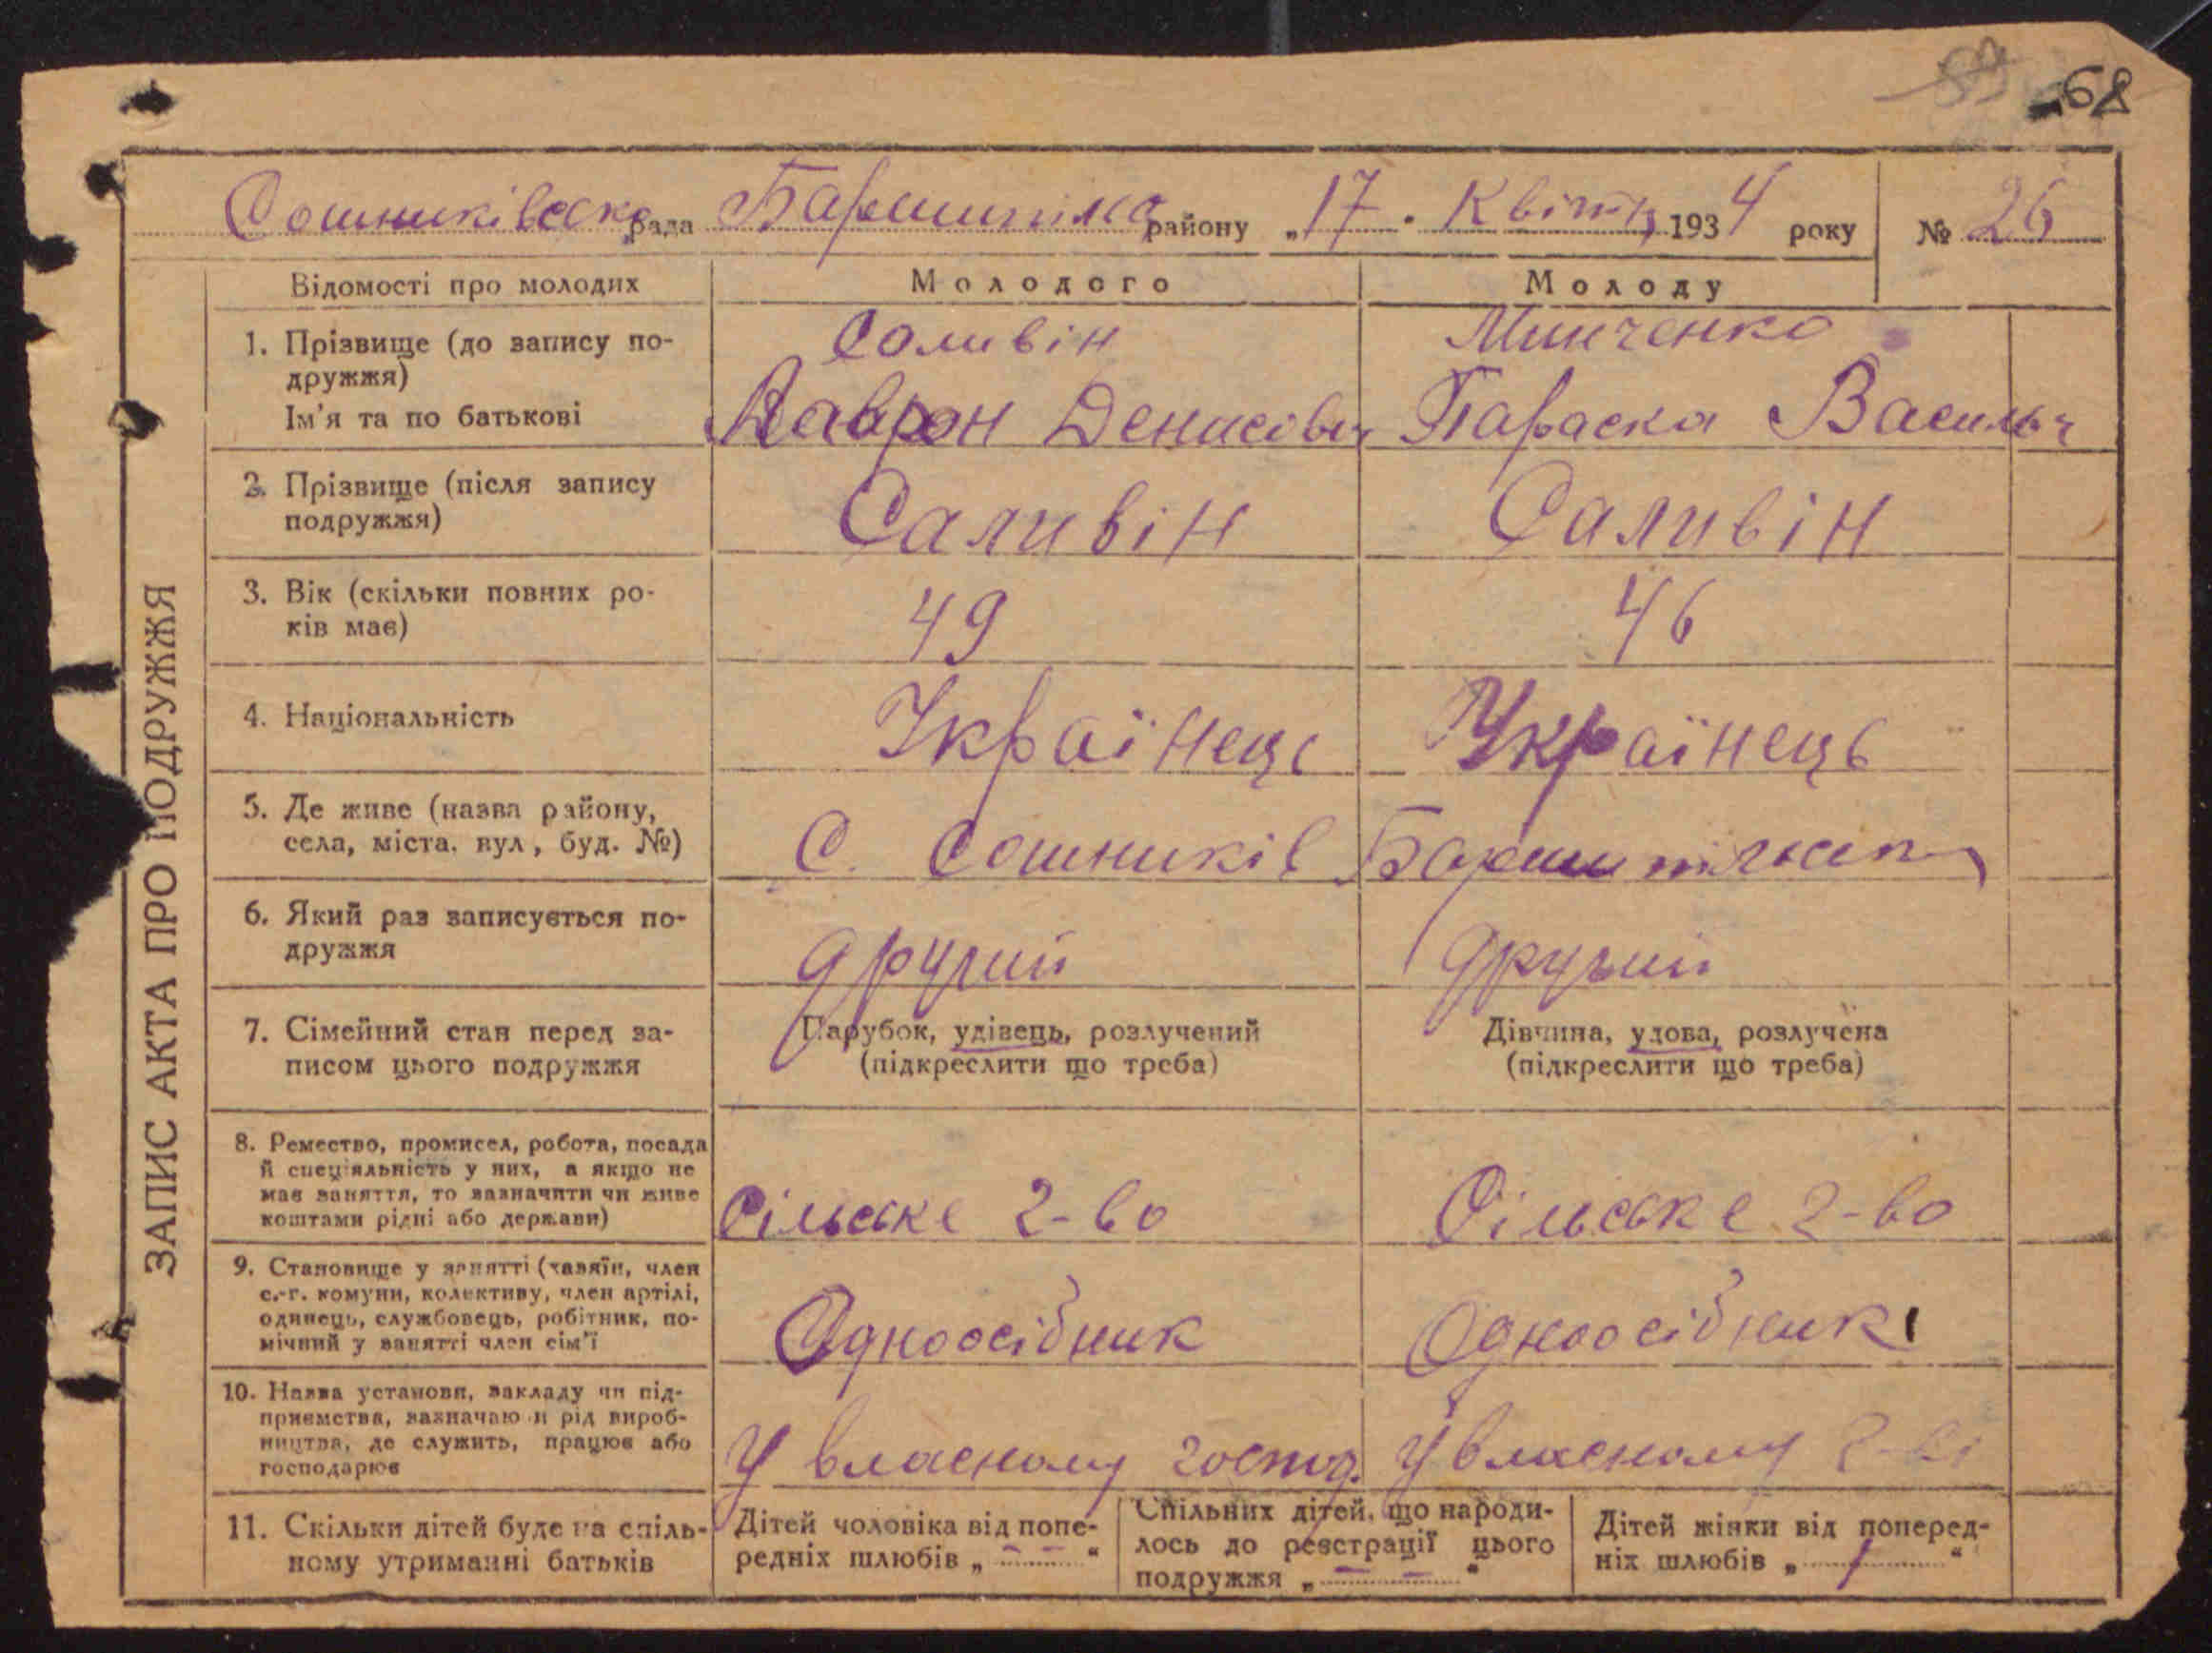 68
Сошниківська рада Баришпілсь району „17. Квітн 1934 року № 26
Відомості про молодих Молодого Молоду
1. Прізвище (до запису по- Соливін Минченко
дружжя)
Ім'я та по батькові Лаврон Денисович Параска Васильч
2. Прізвище (після запису Саливін Саливін
подружжя)
3. Вік (скільки повних ро- 49 46
ків має)
4. Національність Українець Українець
5. Де живе (назва району,
села, міста, вул, буд. №) С. Сошників
6. Який раз записується по-
дружжя другий другий
7. Сімейний стан перед за- Парубок, удівець, розлучений Дівчина, удова, розлучена
писом цього подружжя (підкреслити що треба) (підкреслити що треба)
8. Ремество, промисел, робота, посада
й спеціяльність у них, а якщо не
має заняття, то зазначити чи живе Сільське г-во Сільське г-во
коштами рідні або держави)
9. Становище у занятті (хазяїн, член
с.-г. комуни, колективу, член артілі,
одинець, службовець, робітник, по- Одноосібник Одноосібник
мічний у занятті член сім'ї
10. Назва установи, закладу чи під-
приємства, зазначаючи рід вироб-
ництва, де служить, працює або У власному господ. У власному г-ві
господарює
11. Скільки дітей буде на спіль- Дітей чоловіка від попе- Спільних дітей, що народи- Дітей жінки від поперед-
ному утриманні батьків редніх шлюбів „ — — “ лось до реєстрації цього ніх шлюбів „ 1 “
подружжя „ — — “
ЗАПИС АКТА ПРО ПОДРУЖЖЯ